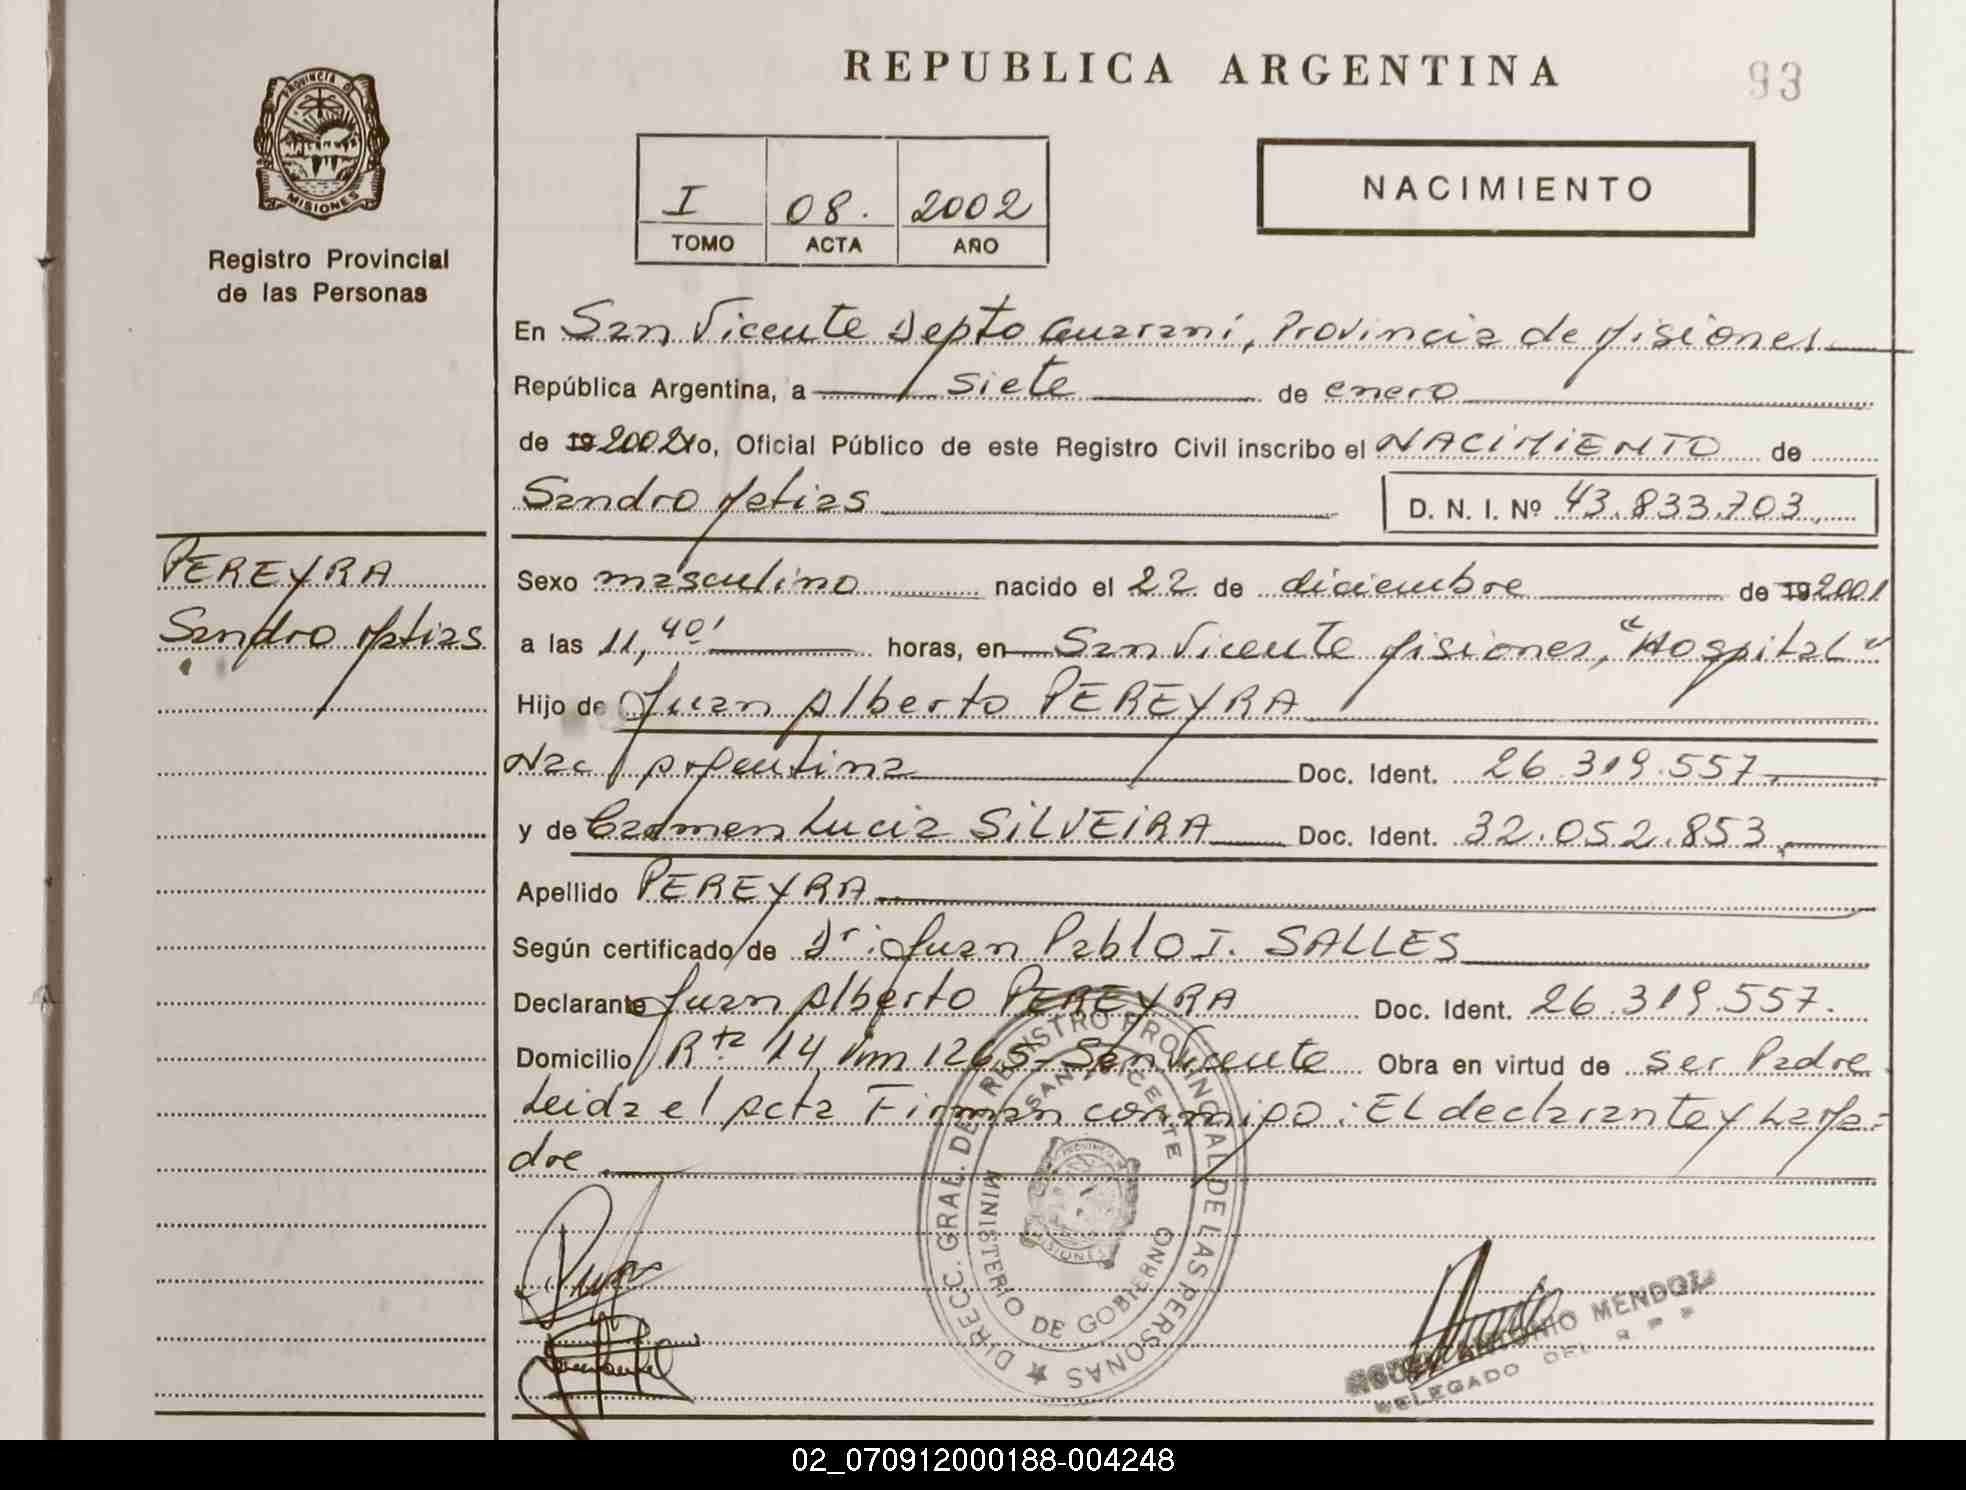 REPUBLICA ARGENTINA
93
PROVINCIA DE
MISIONES
Registro Provincial
de las Personas
I 08. 2002
TOMO ACTA AÑO
NACIMIENTO
En San Vicente Depto Guaraní, Provincia de Misiones
República Argentina, a siete de enero
de 19 2002 Yo, Oficial Público de este Registro Civil inscribo el NACIMIENTO de
Sandro Matias D. N. I. Nº 43.833.703
PEREYRA
Sandro Matias
Sexo masculino nacido el 22 de diciembre de 19 2001
a las 11,40' horas, en San Vicente Misiones, "Hospital"
Hijo de Juan Alberto PEREYRA
Nac Argentina Doc. Ident. 26.319.557.
y de Carmen Lucia SILVEIRA Doc. Ident. 32.052.853
Apellido PEREYRA
Según certificado de Dr: Juan Pablo I. SALLES
Declarante Juan Alberto PEREYRA Doc. Ident. 26.319.557.
Domicilio Rta 14 Km 1265 - San Vicente Obra en virtud de ser Padre
Leida el Acta Firman conmigo: El declarante y La Ma=
dre
DIRECC. GRAL. DEL REGISTRO PROVINCIAL DE LAS PERSONAS
SAN VICENTE
MINISTERIO DE GOBIERNO
MISIONES
ANTONIO MENDOZA
DELEGADO DEL R P P
02_070912000188-004248